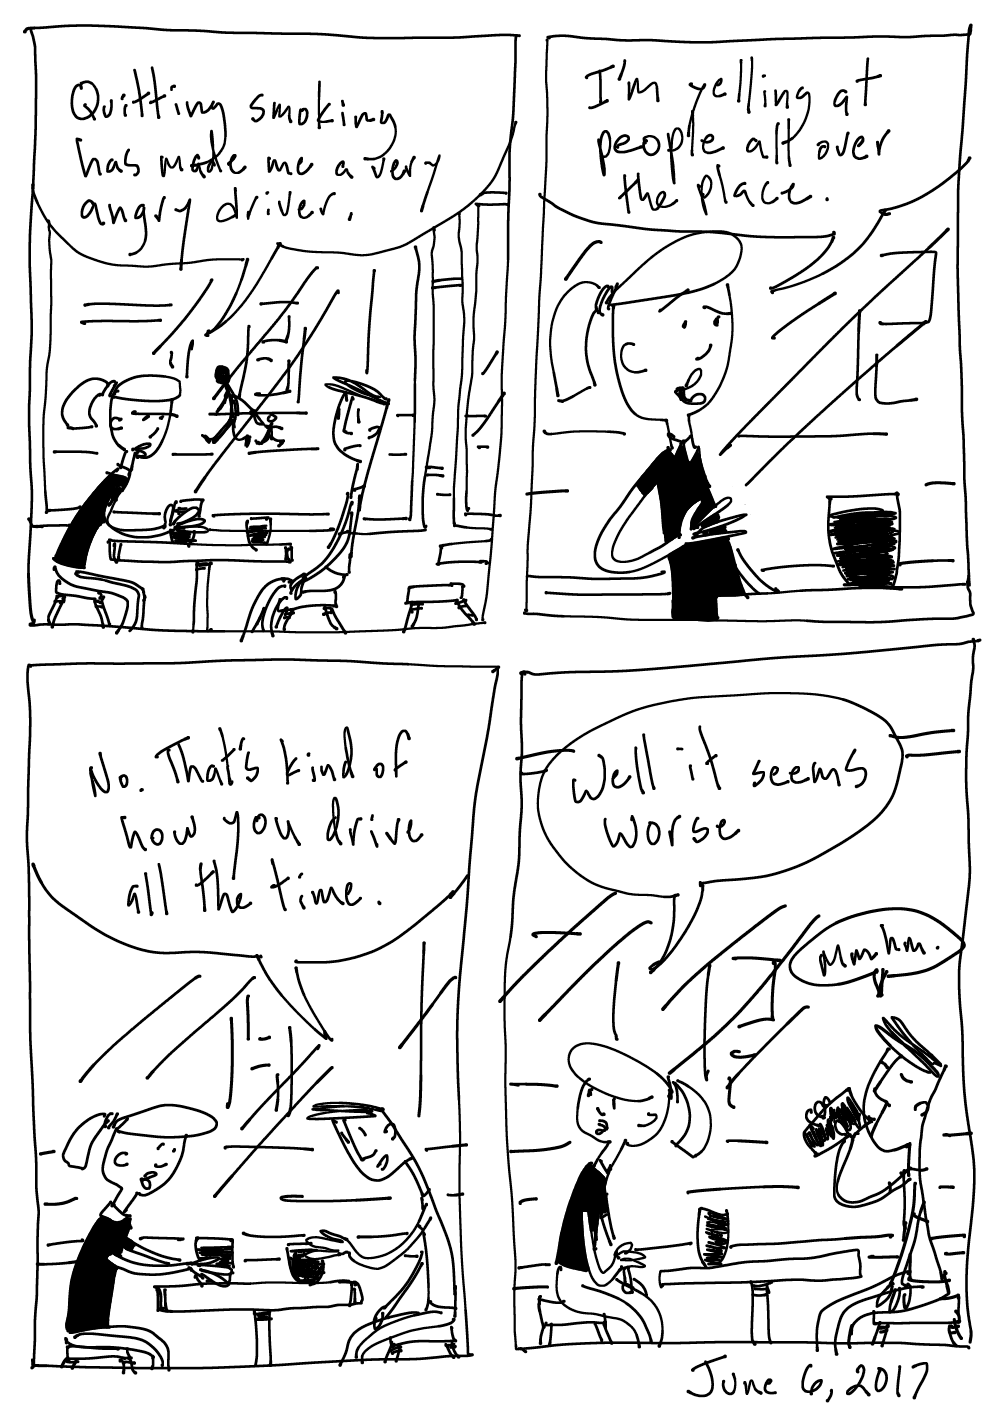 Quitting smoking
has made me a very
angry driver.
I'm yelling at
people all over
the place.
No. That's kind of
how you drive
all the time.
Well it seems
worse
Mm hm.
June 6, 2017